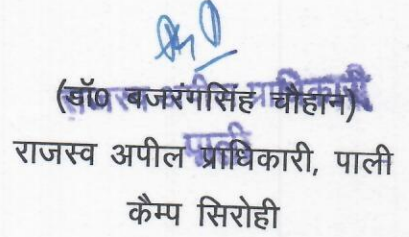 (डॉ0 बजरंगसिंह चौहान)
राजस्व अपील प्राधिकारी, पाली
कैम्प सिरोही